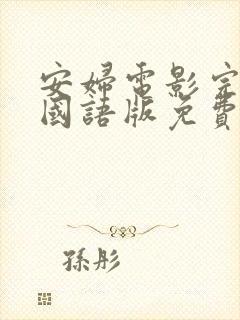 安婦電影完
國語版免費
孫彤